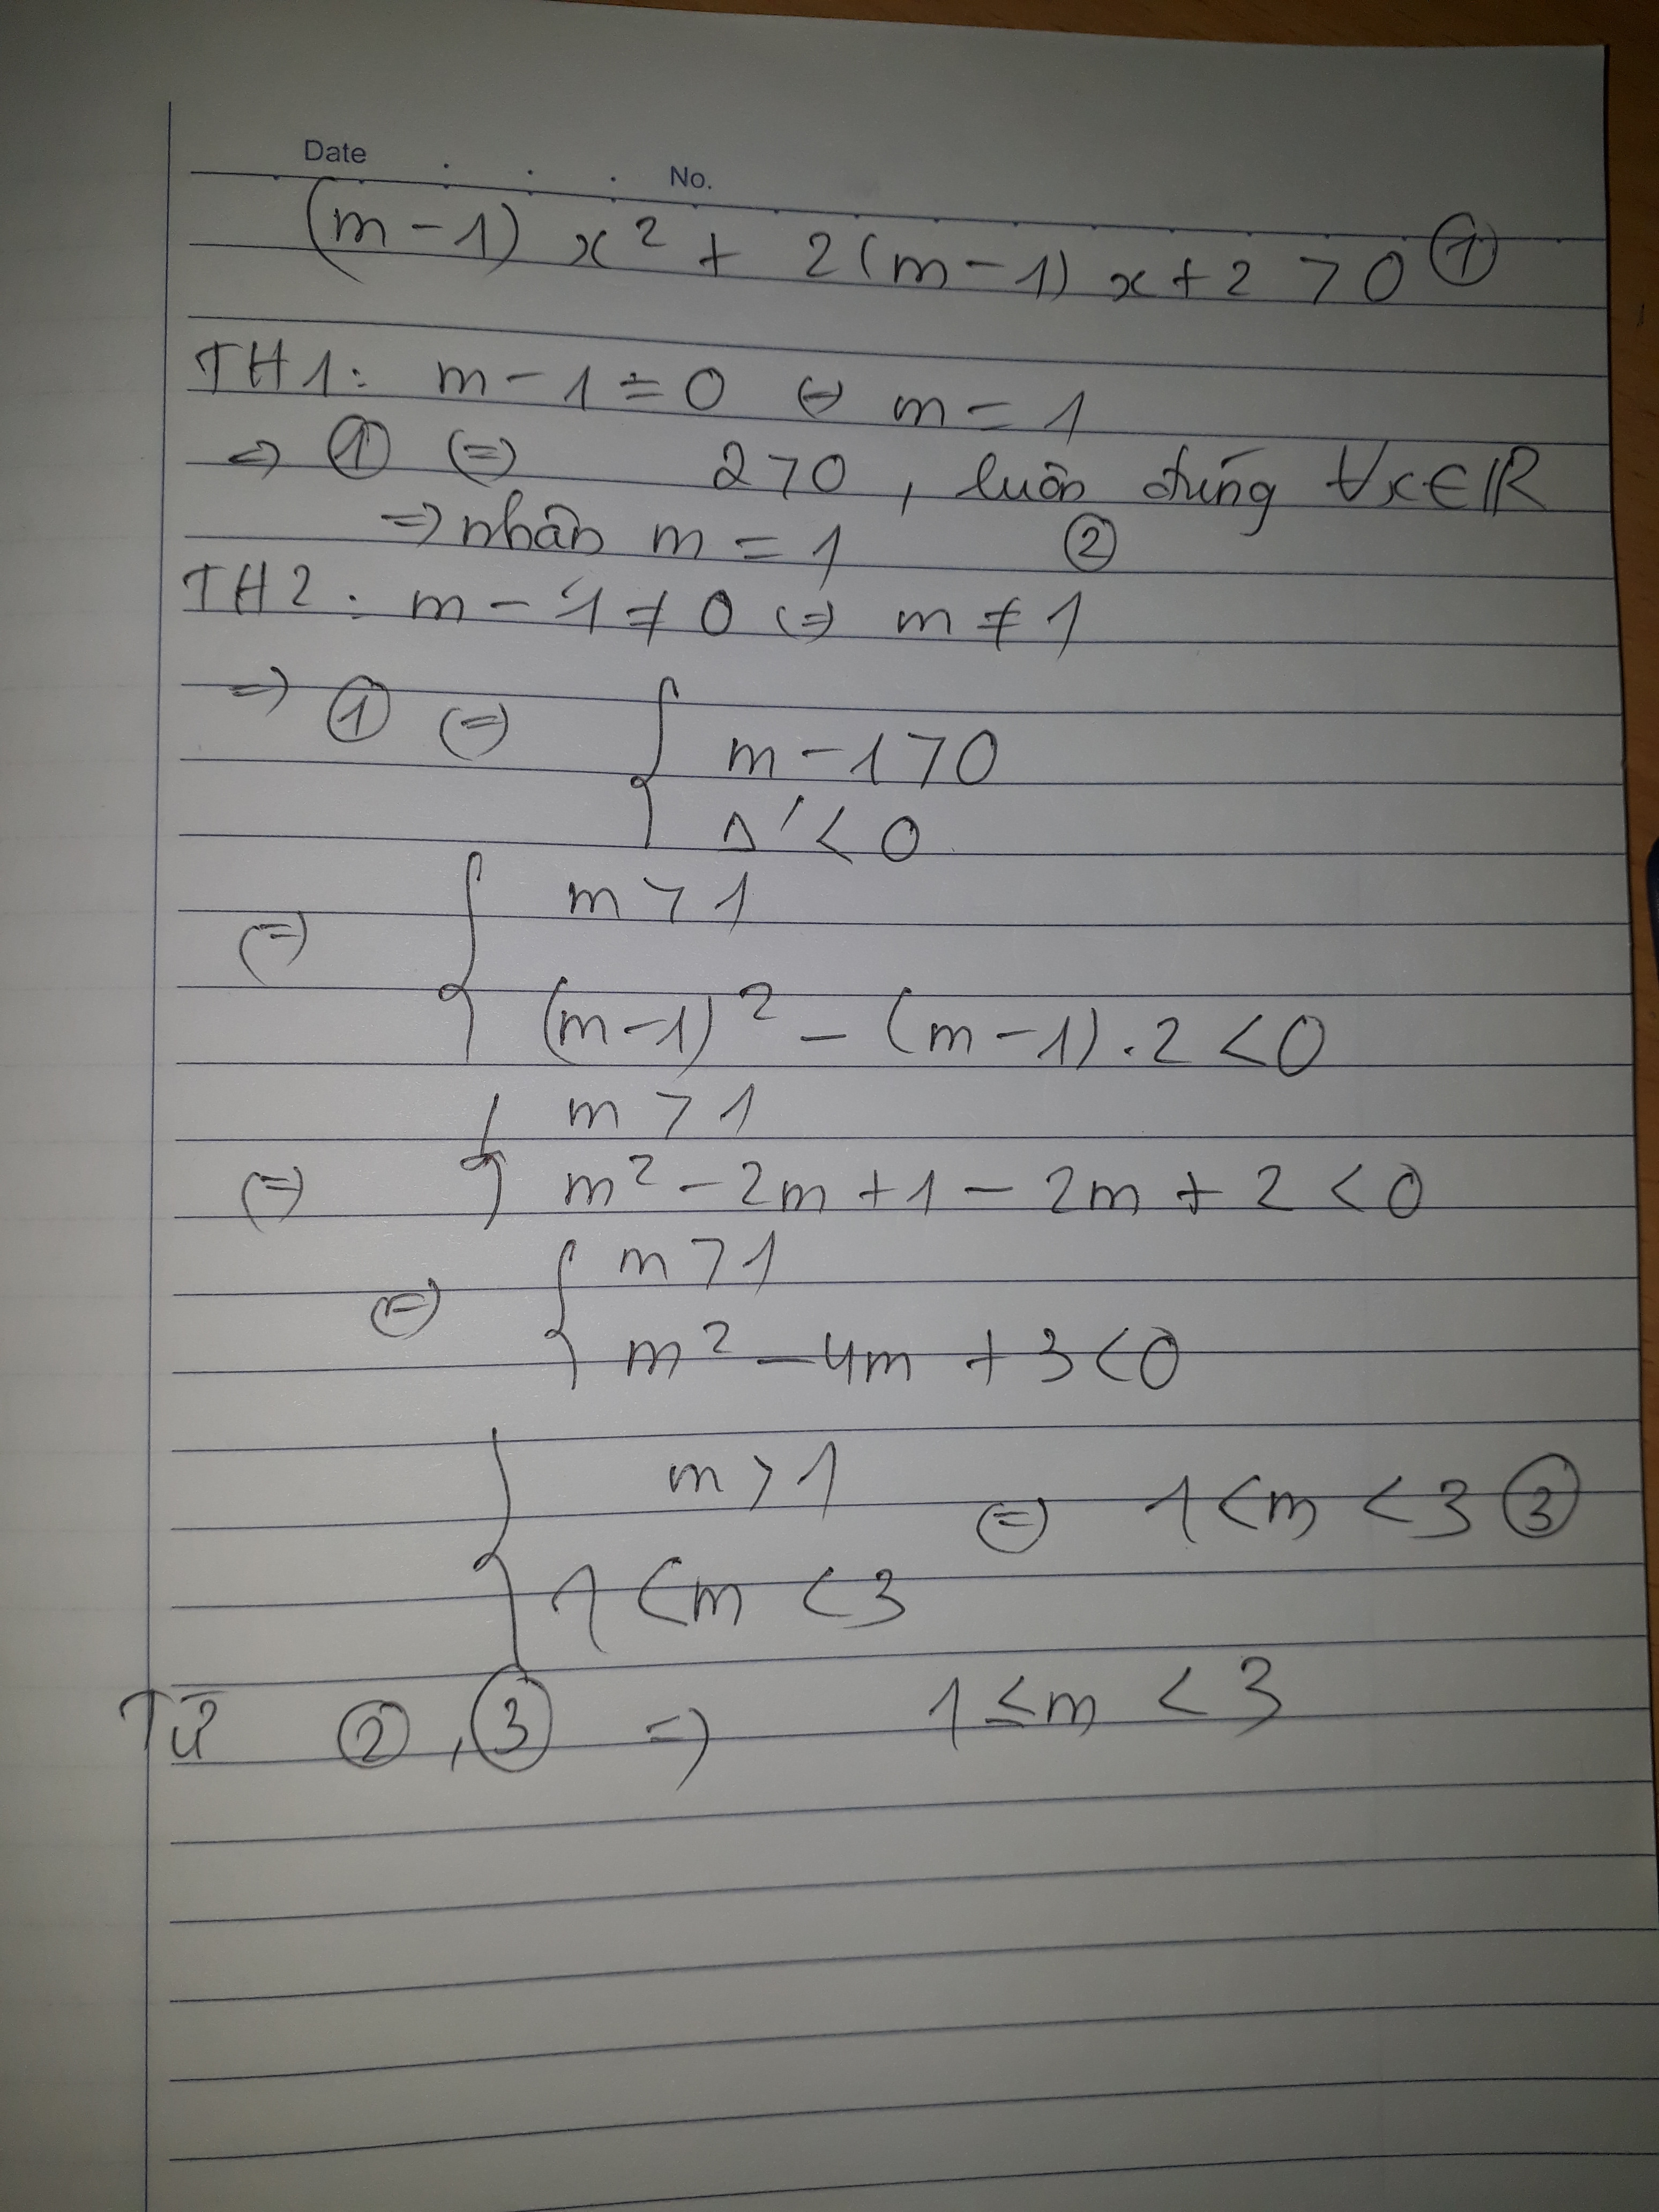 Date No.
(m-1) x² + 2(m-1) x + 2 > 0 ①
TH1: m - 1 = 0 ⇔ m = 1
⇒ ① ⇔ 2 > 0, luôn đúng ∀x∈ℝ
⇒ nhận m = 1 ②
TH2: m - 1 ≠ 0 ⇔ m ≠ 1
⇒ ① ⇔ { m - 1 > 0
Δ' < 0
⇔ { m > 1
(m-1)² - (m-1).2 < 0
⇔ { m > 1
m² - 2m + 1 - 2m + 2 < 0
⇔ { m > 1
m² - 4m + 3 < 0
{ m > 1
1 < m < 3 ⇔ 1 < m < 3 ③
Từ ②, ③ ⇒ 1 ≤ m < 3